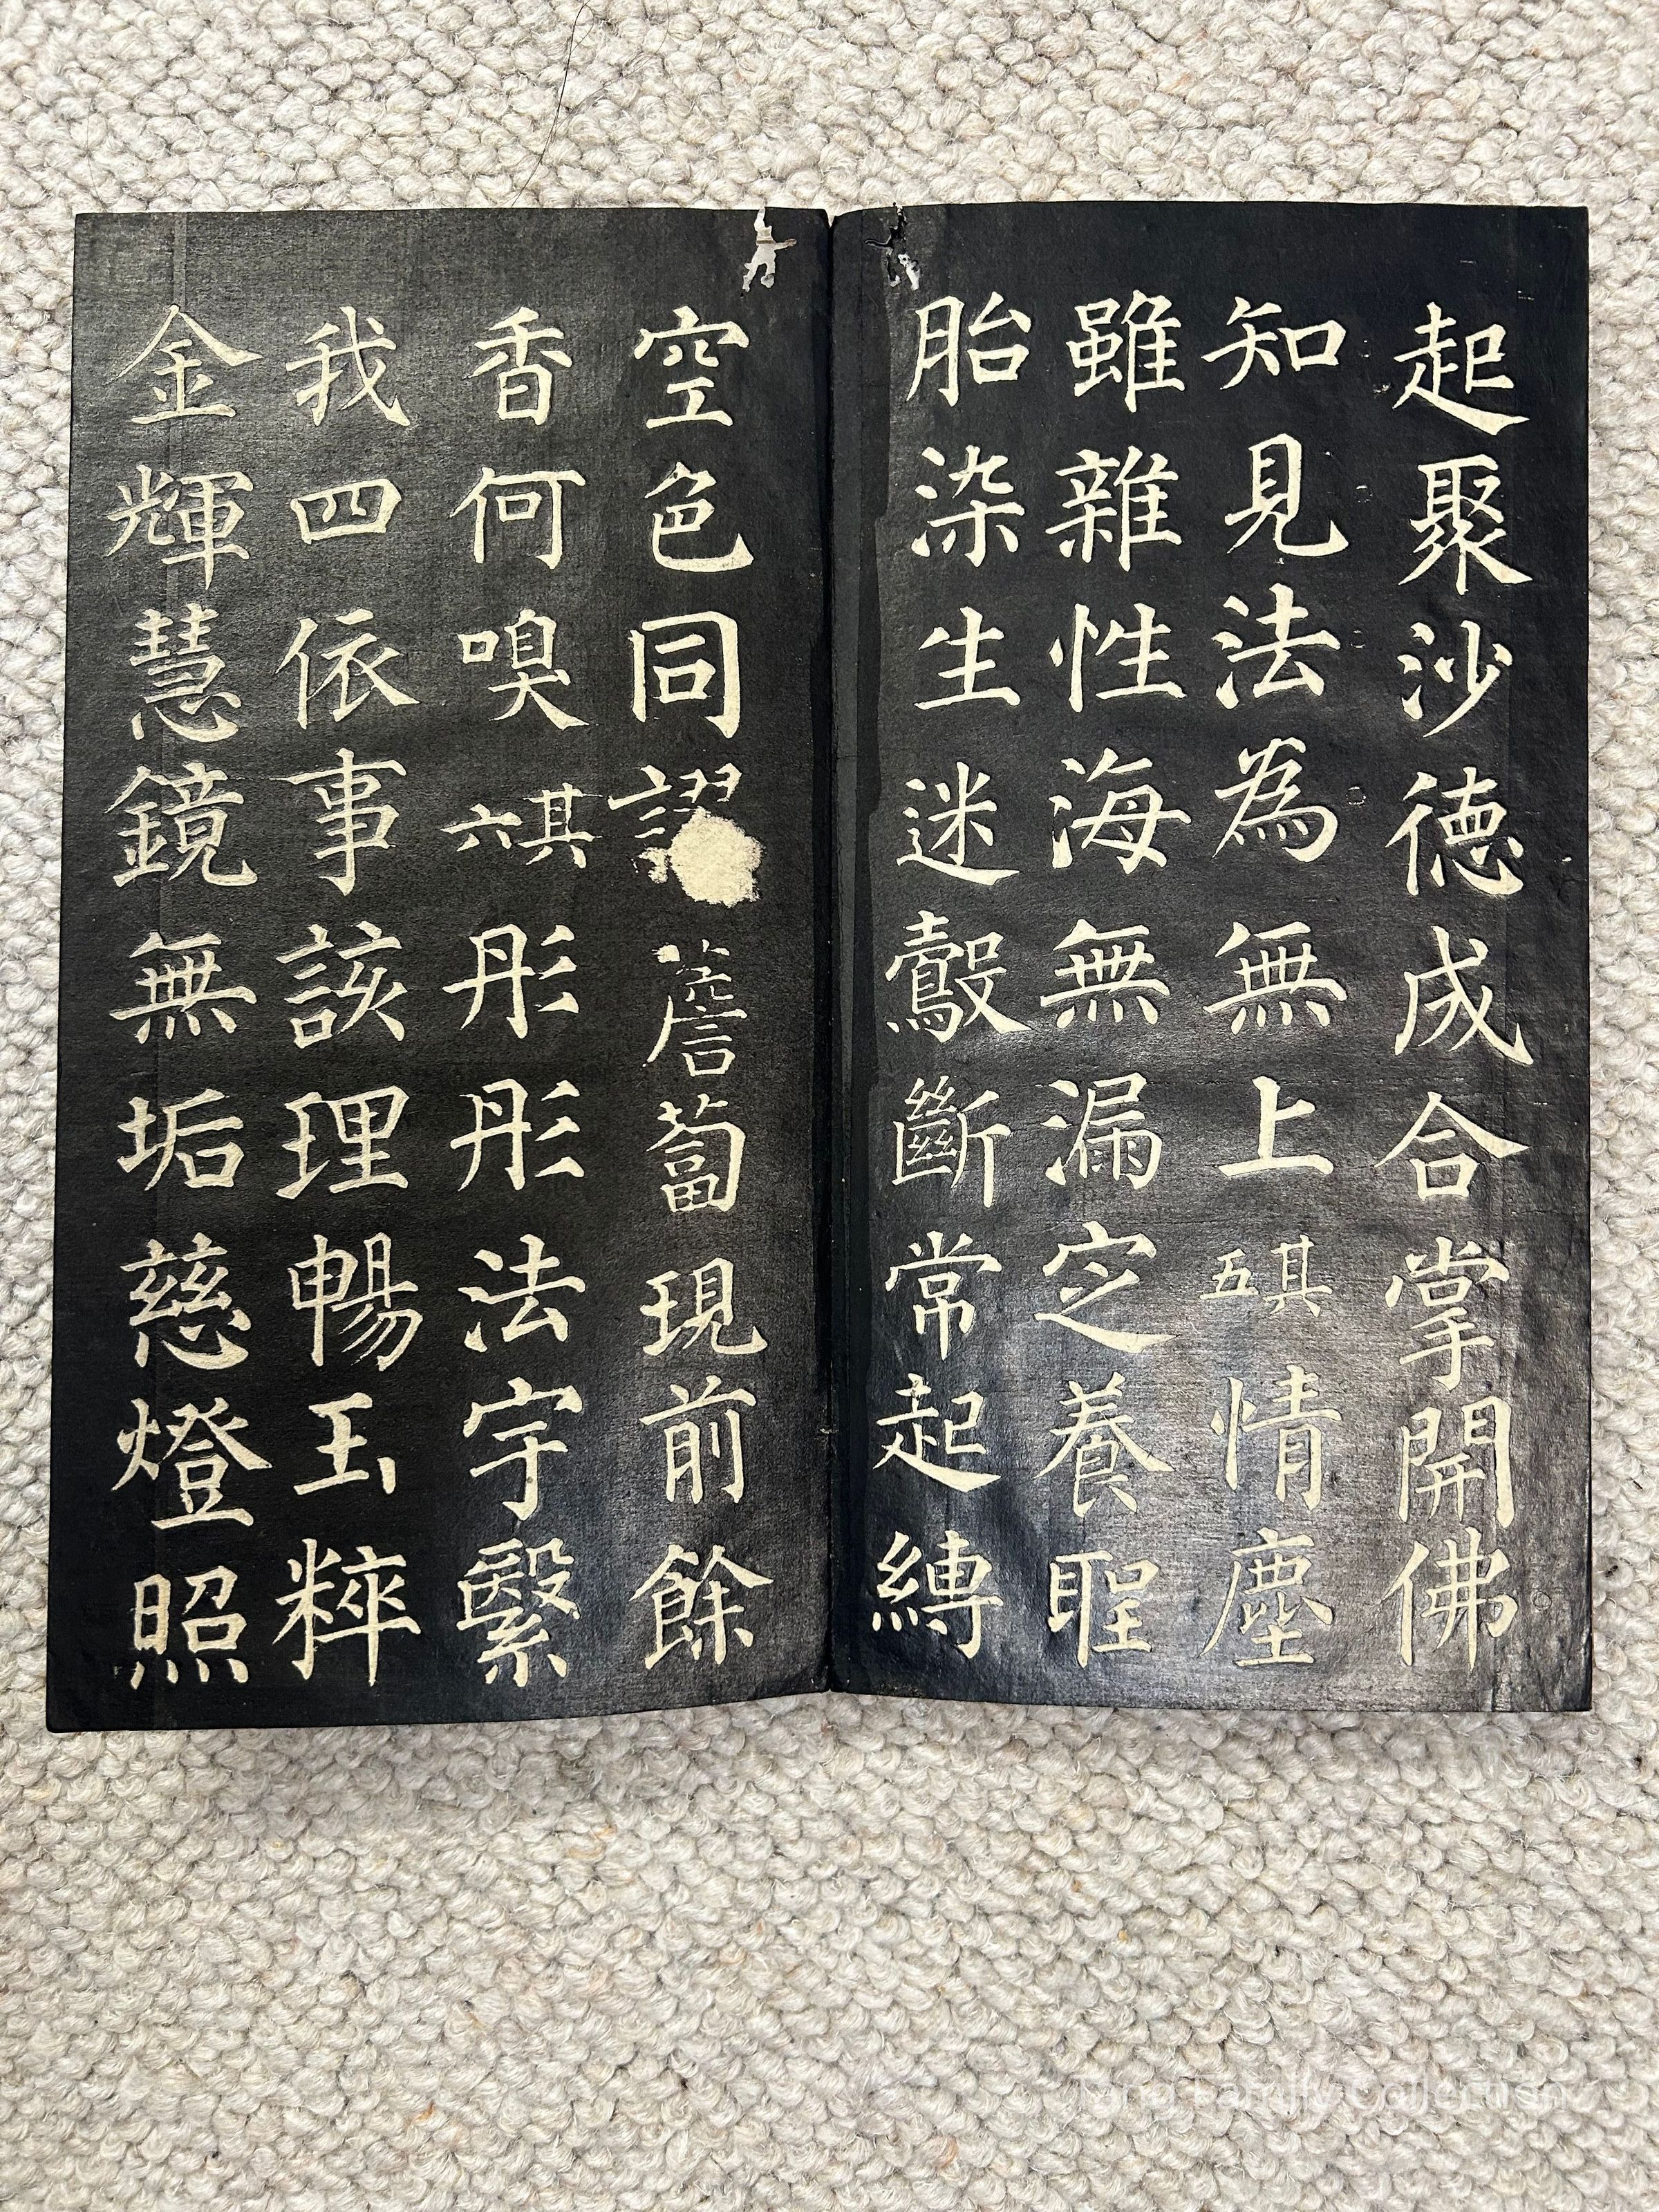 起聚沙德成合掌開佛
知見法為無上其五情塵
雖雜性海無漏定養聖
胎染生迷鷇斷常起縛
空色同謬薝蔔現前餘
香何嗅其六彤彤法宇繄
我四依事該理暢玉粹
金輝慧鏡無垢慈燈照
Tang Family Collection